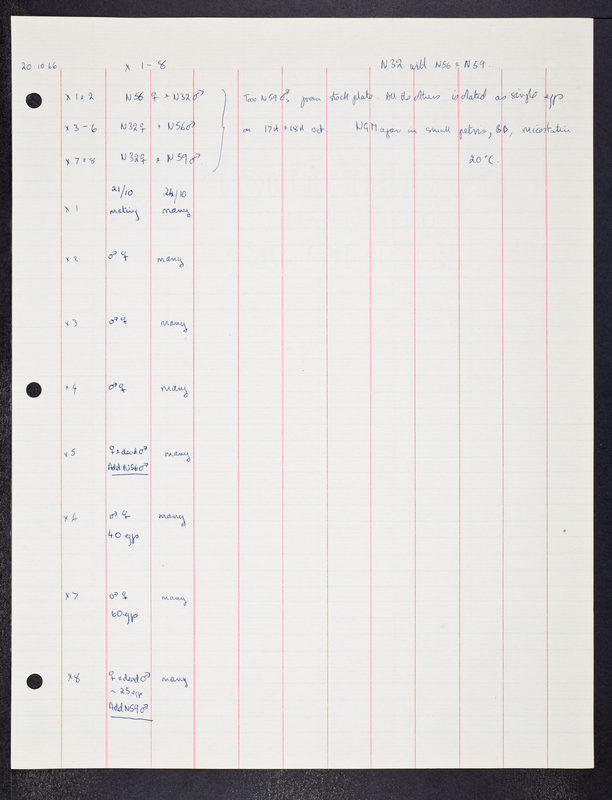 20.10.66. x 1-8 N32 with N56 & N59.
x 1+2 N56 ♀ + N32♂ Two N59 ♂s from stock plate. All the others isolated as single eggs
x 3-6 N32♀ + N56♂ on 17th + 18th Oct NGM agar in small petris, BB, mycostatin
x 7+8 N32♀ + N59♂ 20°C.
21/10 24/10
x 1 mating many
x 2 ♂ ♀ many
x 3 ♂ ♀ many
x 4 ♂ ♀ many
x 5 ♀ + dead ♂ many
Add N56♂
x 6 ♂ ♀ many
40 eggs
x 7 ♂ ♀ many
60 eggs
x 8 ♀ + dead ♂ many
~ 25 eggs
Add N59♂